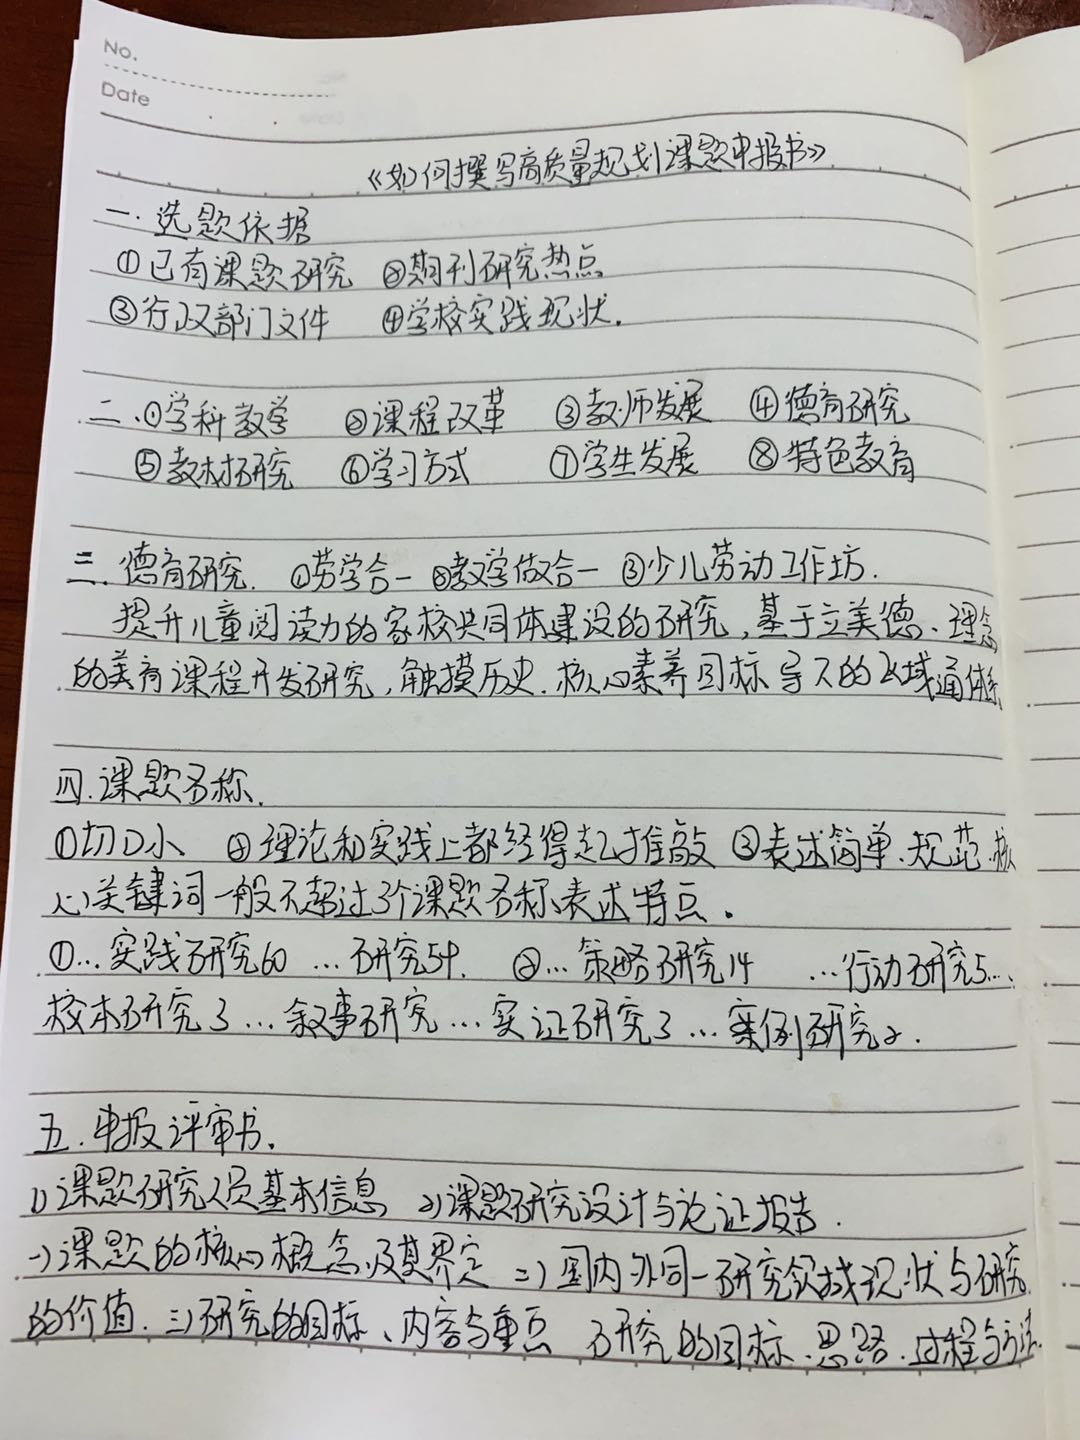 No.
Date
《如何撰写高质量规划课题申报书》
一.选题依据
①已有课题研究 ②期刊研究热点
③行政部门文件 ④学校实践现状.
二.①学科教学 ②课程改革 ③教师发展 ④德育研究
⑤教材研究 ⑥学习方式 ⑦学生发展 ⑧特色教育
三.德育研究. ①劳学合一 ②教学做合一 ③少儿劳动工作坊.
提升儿童阅读力的家校共同体建设的研究,基于立美德、理念
的美育课程开发研究,触摸历史.核心素养目标导入的区域通体系
四.课题名称.
①切口小 ②理论和实践上都经得起推敲 ③表述简单.规范.核
心关键词一般不超过3个课题名称表述特点.
①…实践研究60 …研究59. ②…策略研究14 …行动研究5…
校本研究3…叙事研究…实证研究3…案例研究2.
五.申报评审书.
1)课题研究人员基本信息 2)课题研究设计与论证报告.
一)课题的核心概念及其界定 二)国内外同一研究领域现状与研究
的价值.三)研究的目标、内容与重点 研究的目标.思路.过程与方法.